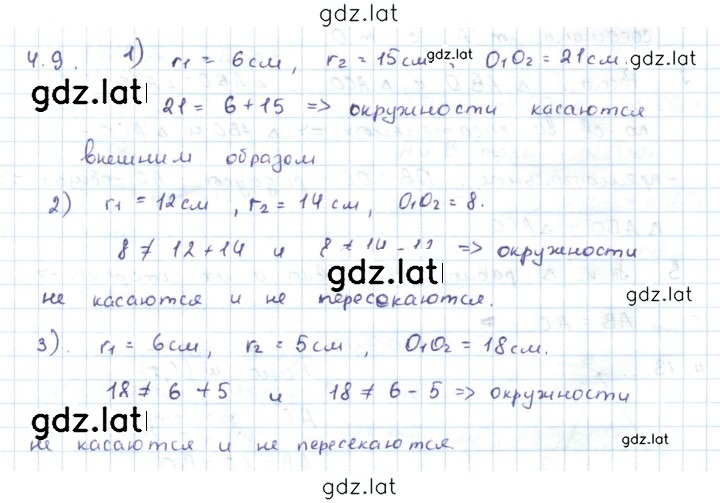 gdz.lat
4.9. 1) r₁ = 6 см, r₂ = 15 см, O₁O₂ = 21 см.
gdz.lat
gdz.lat
gdz.lat
21 = 6 + 15 => окружности касаются
внешним образом
2) r₁ = 12 см, r₂ = 14 см, O₁O₂ = 8.
8 ≠ 12 + 14 и 8 ≠ 14 - 12 => окружности
gdz.lat
gdz.lat
не касаются и не пересекаются.
3). r₁ = 6 см, r₂ = 5 см, O₁O₂ = 18 см.
18 ≠ 6 + 5 и 18 ≠ 6 - 5 => окружности
gdz.lat
gdz.lat
не касаются и не пересекаются.
gdz.lat